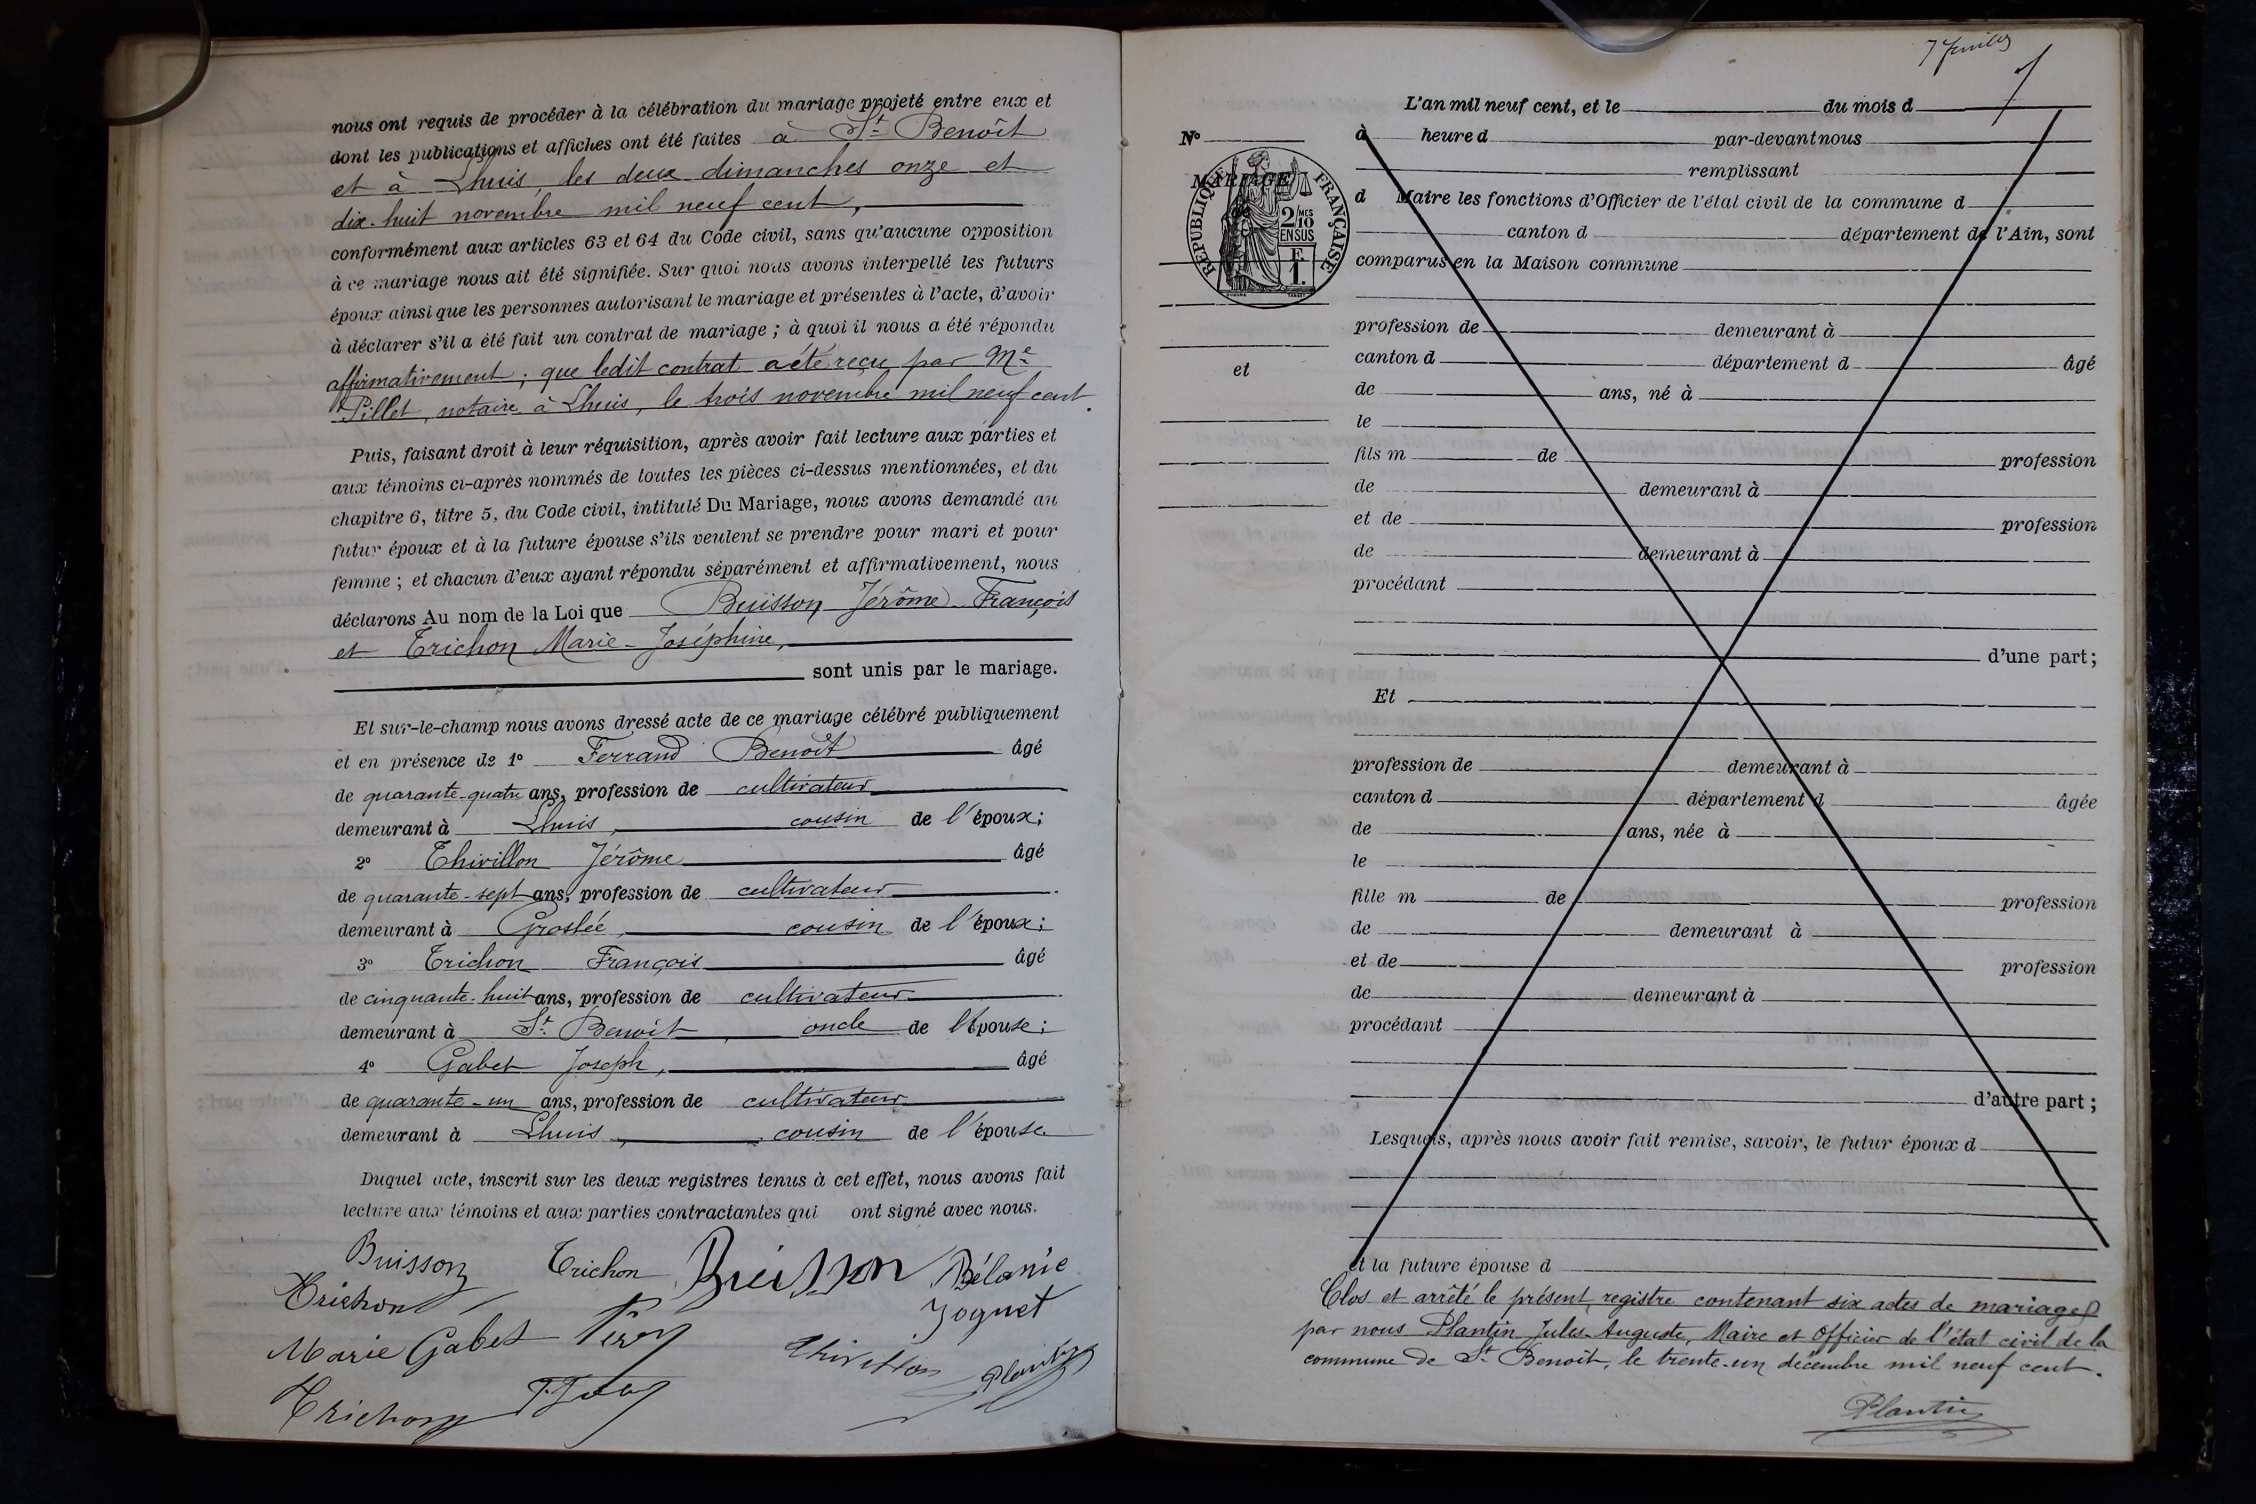 nous ont requis de procéder à la célébration du mariage projeté entre eux et
dont les publications et affiches ont été faites à St Benoît
et à Lhuis, les deux dimanches onze et
dix-huit novembre mil neuf cent,
conformément aux articles 63 et 64 du Code civil, sans qu'aucune opposition
à ce mariage nous ait été signifiée. Sur quoi nous avons interpellé les futurs
époux ainsi que les personnes autorisant le mariage et présentes à l'acte, d'avoir
à déclarer s'il a été fait un contrat de mariage ; à quoi il nous a été répondu
affirmativement ; que ledit contrat a été reçu par Me
Pillet, notaire à Lhuis, le trois novembre mil neuf cent.
Puis, faisant droit à leur réquisition, après avoir fait lecture aux parties et
aux témoins ci-après nommés de toutes les pièces ci-dessus mentionnées, et du
chapitre 6, titre 5, du Code civil, intitulé Du Mariage, nous avons demandé au
futur époux et à la future épouse s'ils veulent se prendre pour mari et pour
femme ; et chacun d'eux ayant répondu séparément et affirmativement, nous
déclarons Au nom de la Loi que Buisson Jérôme François
et Trichon Marie-Joséphine,
sont unis par le mariage.
Et sur-le-champ nous avons dressé acte de ce mariage célébré publiquement
et en présence de 1º Ferrand Benoît âgé
de quarante-quatre ans, profession de cultivateur
demeurant à Lhuis, cousin de l'époux ;
2º Thivillon Jérôme âgé
de quarante-sept ans, profession de cultivateur
demeurant à Groslée, cousin de l'époux ;
3º Trichon François âgé
de cinquante-huit ans, profession de cultivateur
demeurant à St Benoît, oncle de l'épouse ;
4º Gabet Joseph, âgé
de quarante-un ans, profession de cultivateur
demeurant à Lhuis, cousin de l'épouse
Duquel acte, inscrit sur les deux registres tenus à cet effet, nous avons fait
lecture aux témoins et aux parties contractantes qui ont signé avec nous.
Buisson Trichon Buisson Bélonie
Trichon Joguet
Marie Gabet Thivillon Plantin
Trichon
7 feuillets
L'an mil neuf cent, et le du mois d
Nº
à heure d par-devant nous
MARIAGE
RÉPUBLIQUE FRANÇAISE
2/10 MES
EN SUS
F.
1.
remplissant
d Maire les fonctions d'Officier de l'état civil de la commune d
canton d département de l'Ain, sont
comparus en la Maison commune
profession de demeurant à
canton d département d âgé
et
de ans, né à
le
fils m de profession
de demeurant à
et de profession
de demeurant à
procédant
d'une part ;
Et
profession de demeurant à
canton d département d âgée
de ans, née à
le
fille m de profession
de demeurant à
et de profession
de demeurant à
procédant
d'autre part ;
Lesquels, après nous avoir fait remise, savoir, le futur époux d
et la future épouse d
Clos et arrêté le présent registre contenant six actes de mariages
par nous Plantin Jules-Auguste, Maire et Officier de l'état civil de la
commune de St Benoît, le trente-un décembre mil neuf cent.
Plantin